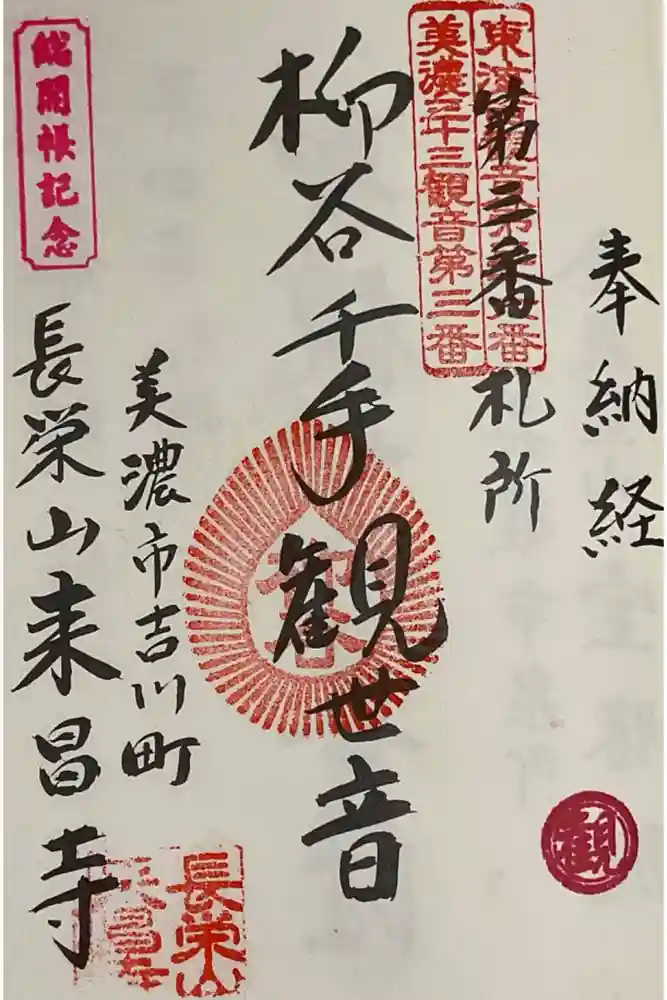 奉納経
東海観音第三番
美濃三十三観音第三番
第三番
札所
柳谷千手観世音
美濃市吉川町
長栄山来昌寺
総開帳記念
観
長栄山
来昌寺